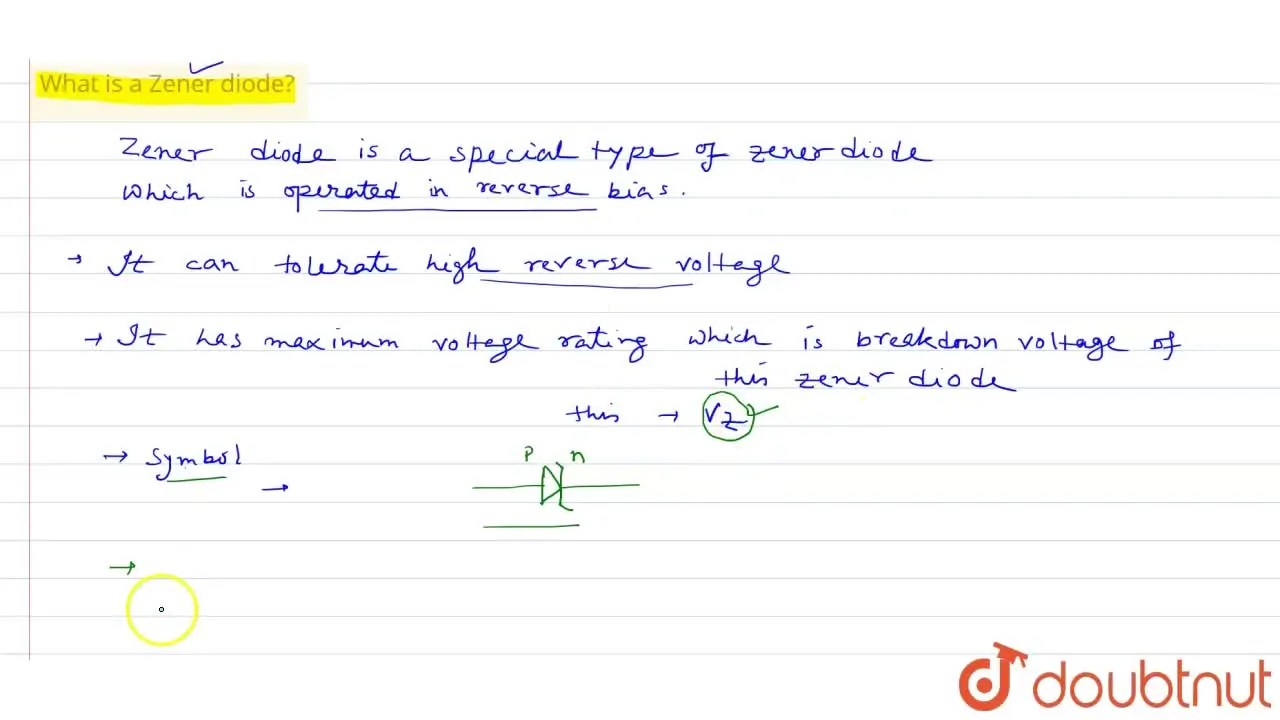 What is a Zener diode?
Zener diode is a special type of zener diode
which is operated in reverse bias.
→ It can tolerate high reverse voltage
→ It has maximum voltage rating which is breakdown voltage of
this zener diode
this → Vz
→ Symbol
→
P n
→
doubtnut